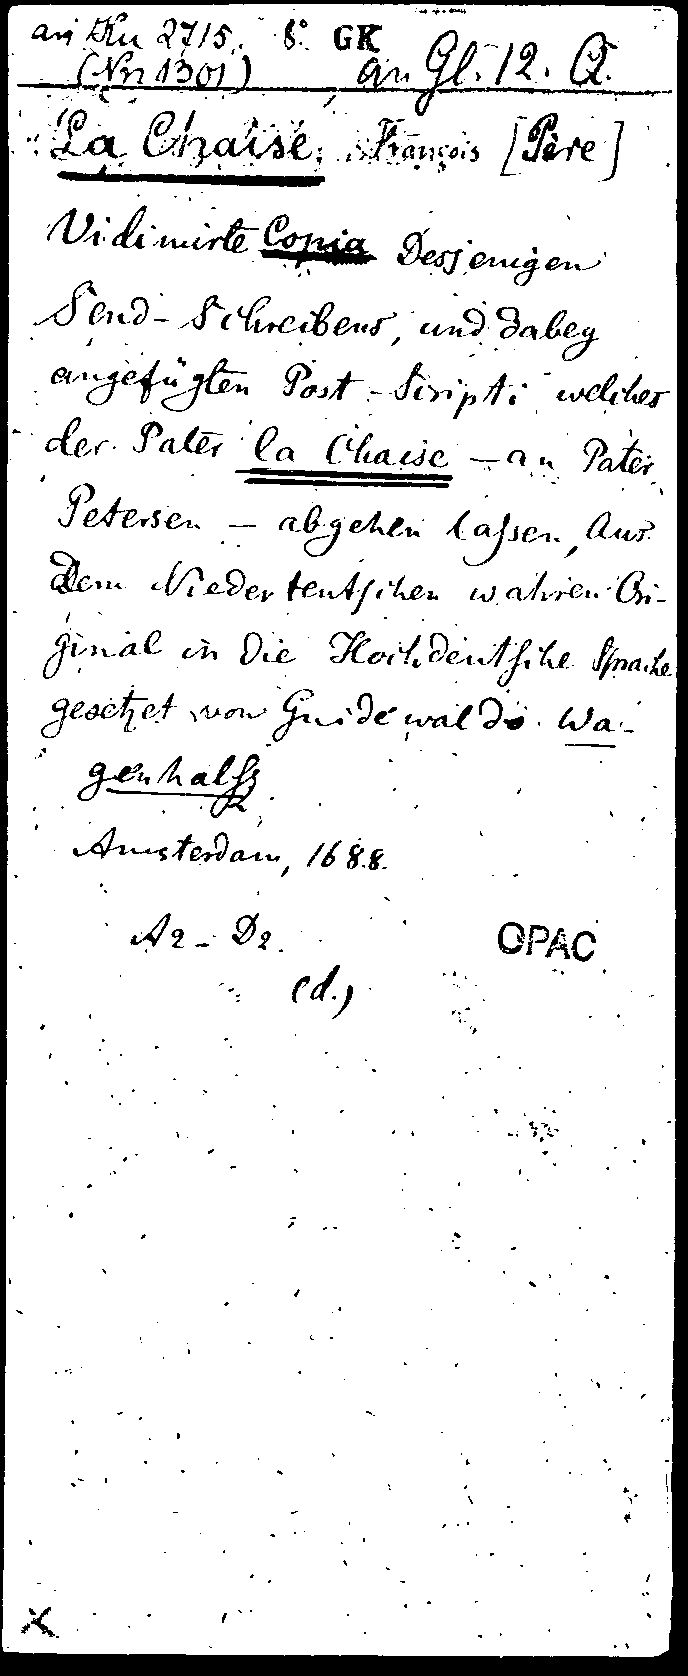 an Ku 2715. 8° GK
(Nr 1301), an Gl. 12. Q.
La Chaise, François [Père]
Vidimirte Copia Desjenigen
Send-Schreibens, und dabey
angefügten Post-Scripti welches
der Pater la Chaise – an Pater
Petersen – abgehen lassen, Aus
Dem Niederteutschen wahren Ori-
ginal in die Hochdeutsche Sprache
gesetzet von Guidewaldo Wa-
genhalß
Amsterdam, 1688.
A2 - D2.
OPAC
(d.)
X